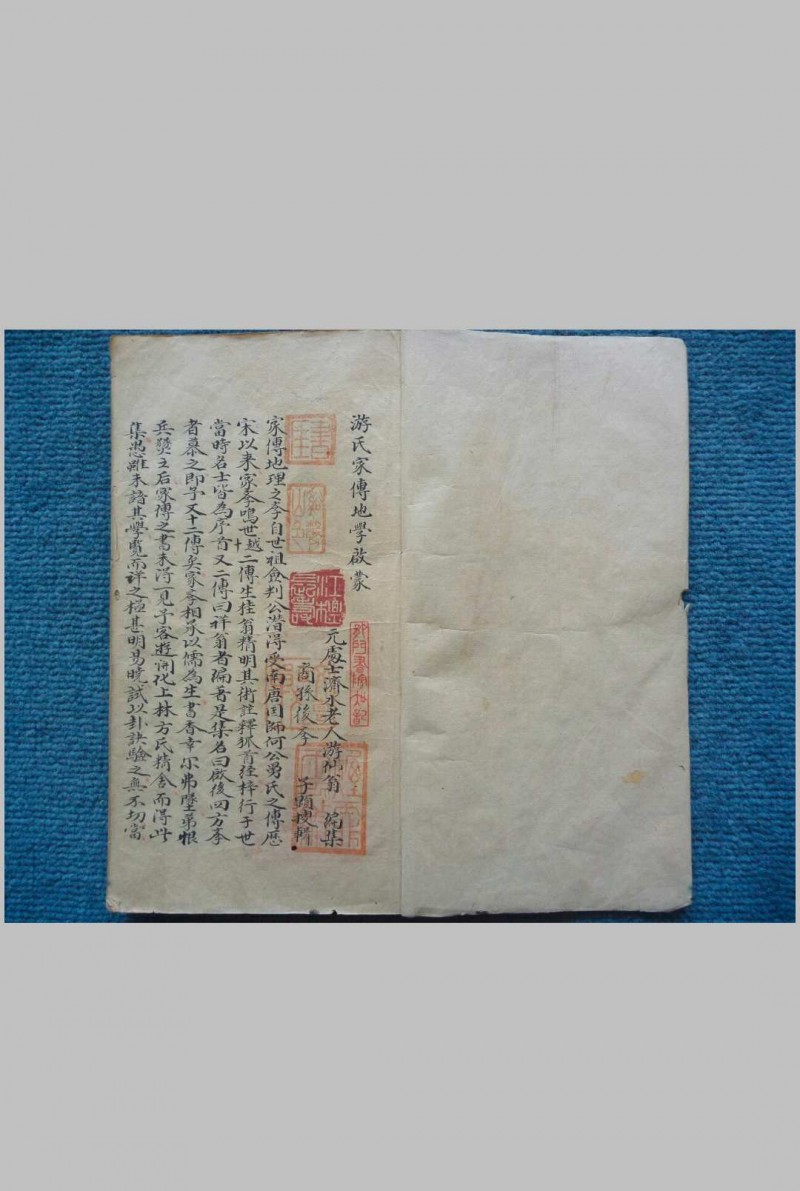 游氏家傳地學啟蒙
元處士濟水老人游仙翁 編集
裔孫後李 子顯搜輯
家傳地理之李自世祖僉判公潛得受南唐囯師何公曽氏之傳歷
宋以来家李鳴世越十二傳生桂翁精明其術註釋狐首经梓行于世
當時名士皆為序首又二傳曰祥翁者编著是集名曰啟後四方李
者慕之即予又十二傳矣家李相承以儒為生書香幸尔弗墜第恨
兵燹之后家傳之書未得一見予客遊開化上林方氏精舍而得此
集愚雖未諳其學覽而詳之極甚明易曉試以卦訣驗之無不切當